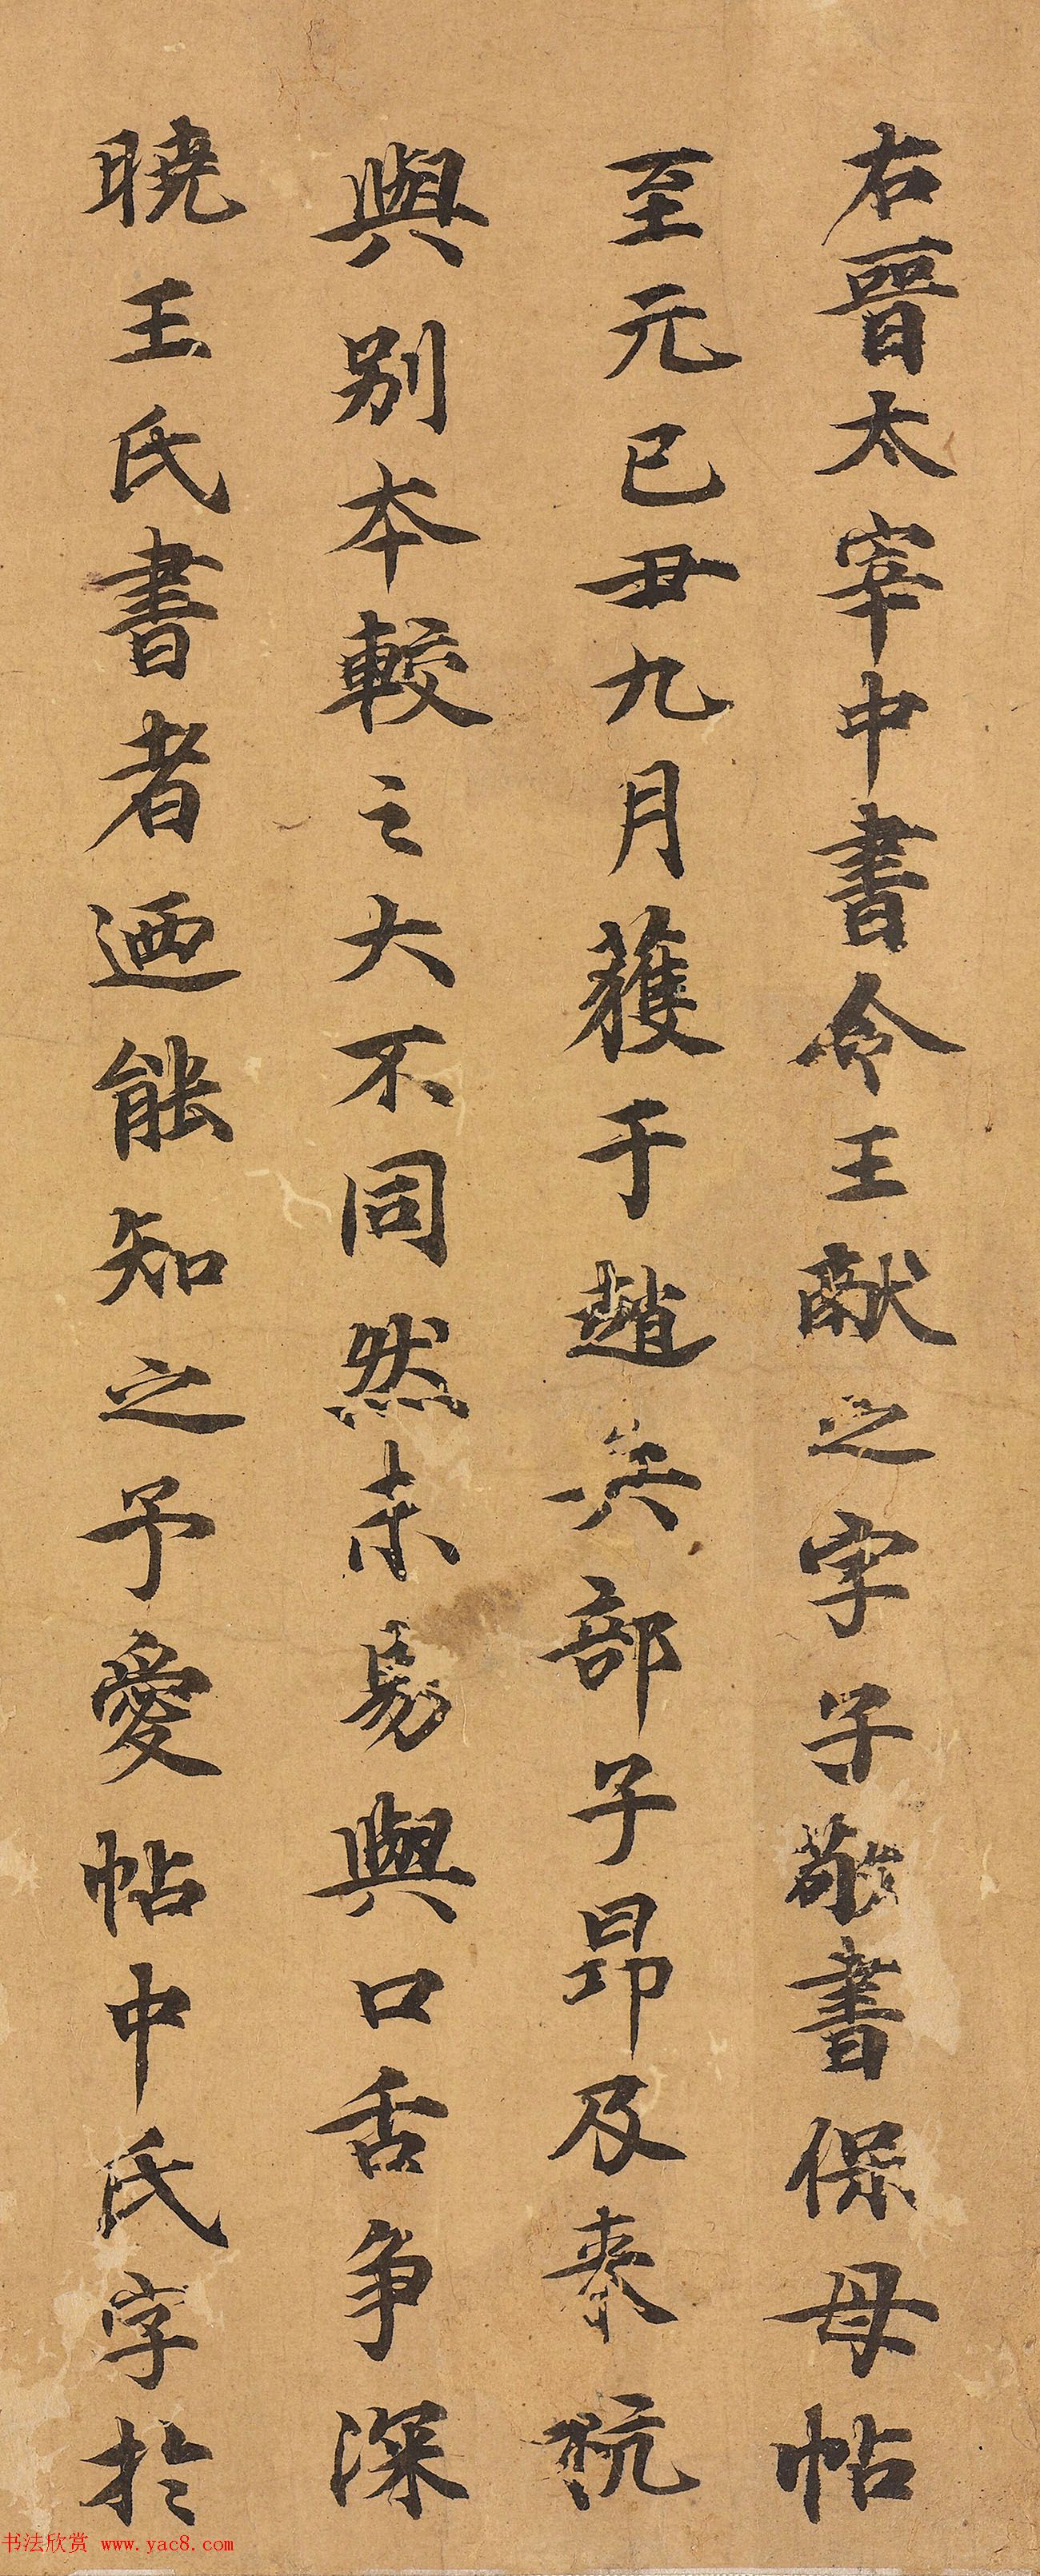 右晉太宰中書令王獻之字子敬書保母帖
至元己丑九月蒦于趙兵部子昂及泰
與别本較之大不同然未易與口舌争深
曉王氏書者迺能知之予愛帖中氏字於
书法欣赏 www.yac8.com